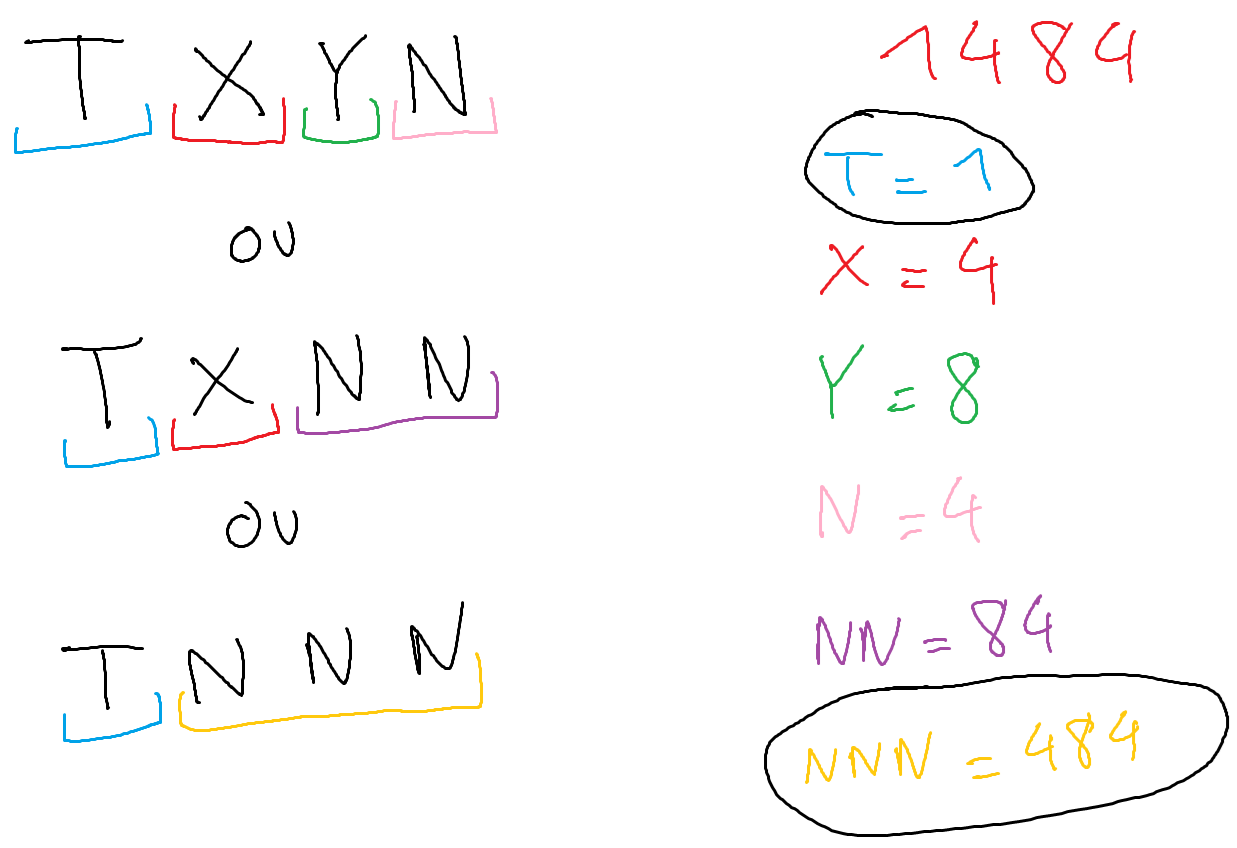 T X Y N
OU
T X N N
OU
T N N N
1484
T = 1
X = 4
Y = 8
N = 4
NN = 84
NNN = 484